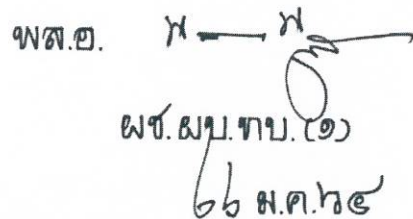 พล.อ.
ผช.ผบ.ทบ.(๑)
ม.ค.๖๔